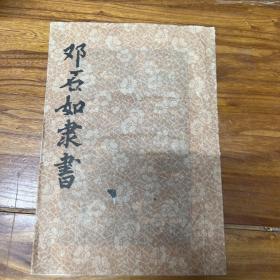 邓石如隶书